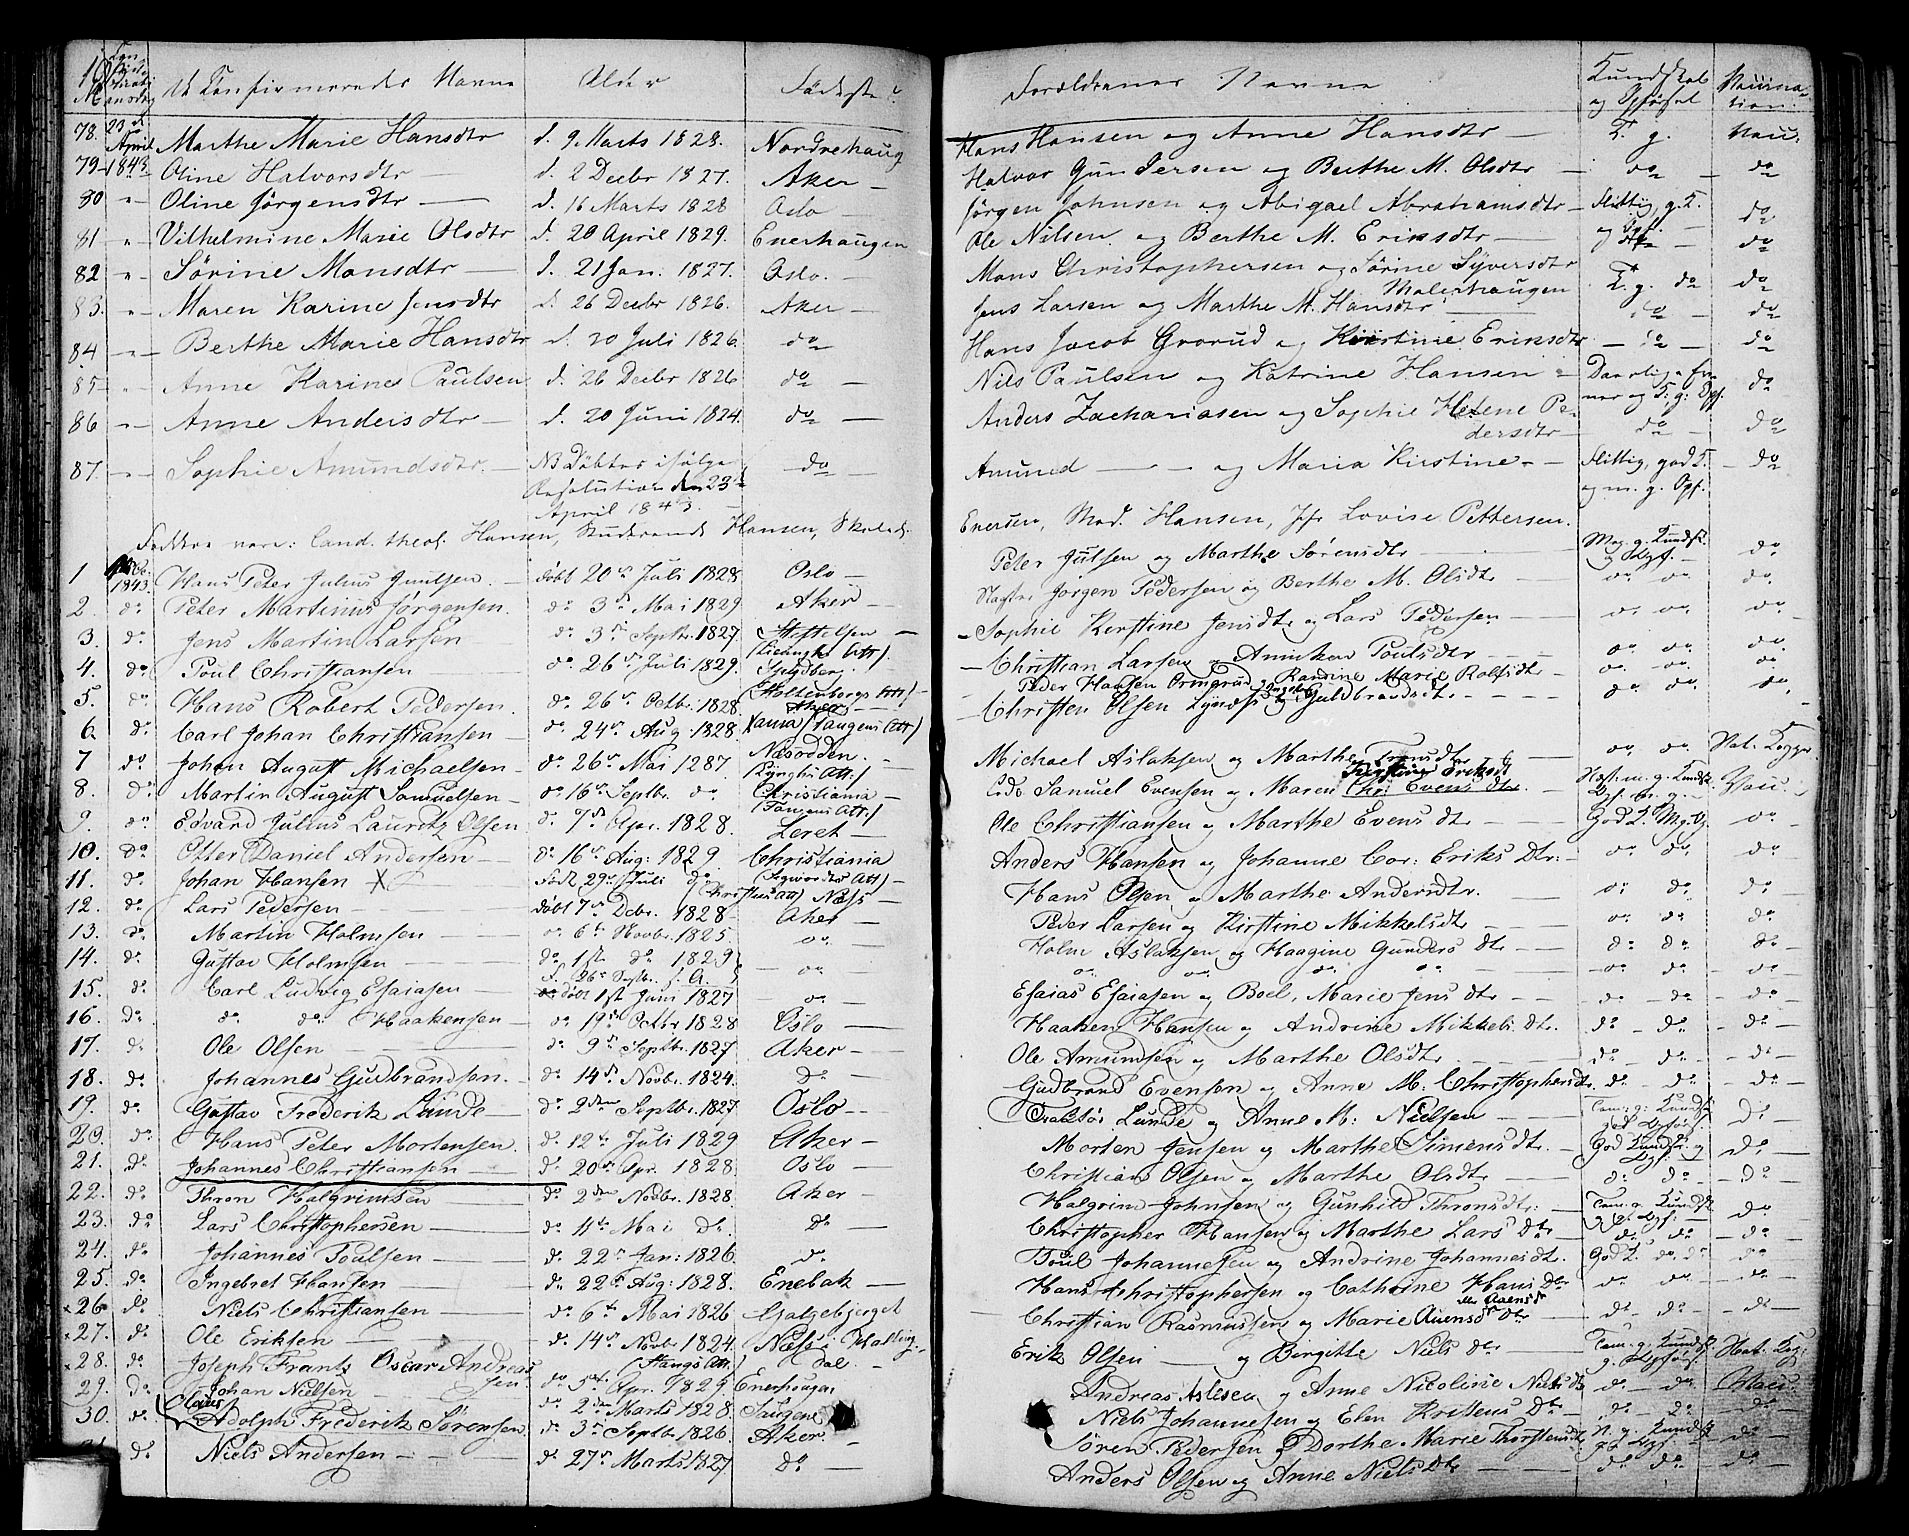 De Confirmeredes Navne Alder Fødested Forældrenes Navne Kundskab
og Opførsel
78. 23 d. April Marthe Marie Hansdtr d. 9 Marts 1828. Nordrehaug Hans Hansen og Anne Hansdtr T. g. Nau.
79 1843. Oline Halvorsdtr d. 2 Decbr 1827. Aker Halvor Gundersen og Berthe M. Olsdtr do do
80 Oline Jørgensdtr d. 16 Marts 1828 Oslo Jørgen Johnsen og Abigael Abrahamsdtr Flittig, g. T. do
81 Vilhelmine Marie Olsdtr d. 20 April 1829. Enerhaugen Ole Nilsen og Berthe M. Eriksdtr do
82 Sørine Monsdtr d. 21 Jan. 1827. Oslo. Mons Christophersen og Sørine Syversdtr T. g. do do
83. Maren Karine Jensdtr d. 26 Decbr 1826. Aker Jens Larsen og Marthe M. Hansdtr Malerhaugen do do
84 Berthe Marie Hansdtr d. 20 Juli 1826. do Hans Jacob Grorud og Kirstine Eriksdtr do do
85 Anne Karine Paulsen d. 26 Decbr 1826 do Nils Paulsen og Katrine Hansen do
86 Anne Andersdtr d. 20 Juni 1824. do Anders Zachariasen og Sophie Helene Pedersdtr do do
87. Sophie Amundsdtr. NB Døbtes ifølge do Amund og Maria Kirstine Flittig, god T. do
Resolution den 23
April 1843. og m. g. Opf.
Faddere vare: Cand. theol. Hansen, Studerende Hansen, Skolel. Enersen, Mad. Hansen, Jfr Lovise Pettersen.
1 1843. Hans Peter Julius Juulsen. Døbt 20 Juli 1828 Oslo Peter Julsen og Marthe Sørensdtr Meg. g. Kundsk. do
2. do Peter Martinus Jørgensen. do 3 Mai 1829. Aker Jørgen Pedersen og Berthe M. Olsdtr do do do
3. do Jens Martin Larsen do 3 Septbr. 1827 Sophie Kirstine Jensdtr og Lars Pedersen do do do
4. do Poul Christiansen do 26 Juli 1829. Christian Larsen og Anniken Poulsdtr do do do
5. do Hans Robert Pedersen. do 26 Octbr. 1828. Aker Peder Hansen Ormerud og Randine Marie Rolfsdtr do do do
6 do Carl Johan Christiansen do 24 Aug: 1828. Christen Olsen og Guldbrandsdtr do do do
7 do Johan August Michaelsen do 26 Mai 1287. Næsodden. Michael Aslaksen og Marthe Tronsdtr do do Nat. Kopper
8. do Martin August Samuelsen do 16 Septbr. do Christiania Samuel Evensen og Maren Evensdtr Vau.
9. do Edvard Julius Lauritz Olsen d. 7 Apr. 1828. Leret Ole Christiansen og Marthe Evensdtr God T. do
10. do Otter Daniel Andersen do 16 Aug: 1829. Christiania Anders Hansen og Johanne Cor: Eriksdtr: do do do
11. do Johan Hansen X Født 29 Juli do Hans Olsen og Marthe Andersdtr. do do do
12. do Lars Pedersen døbt 7 Debr. 1828 Aker Peder Larsen og Kirstine Mikkelsdtr do do do
13. do Martin Holmsen do 6 Novbr. 1825 do Holm Aslaksen og Haagine Gundersdtr do do do
14. do Gustav Holmsen do 1st do 1829 do do do do do do do do
15. do Carl Ludvig Esaiasen døbt 1st Juni 1827 do Esaias Esaiasen og Boel Marie Jensdtr do do do
16. do do do Haakensen do 19 Octbr 1828 Oslo Haaken Hansen og Andrine Mikkelsdtr. do do do
17. do Ole Olsen do 9 Septbr. 1827 Aker Ole Amundsen og Marthe Olsdtr do do do
18. do Johannes Gudbrandsen. do 14 Novbr. 1824. do Gudbrand Evensen og Anne M: Christophersdtr. do do do
19. do Gustav Frederik Lunde do 2den Septbr. 1827 Oslo Lunde og Anne M: Nielsen do
20. do Hans Peter Mortensen. do 12 Juli 1829 Aker Morten Jensen og Marthe Simensdtr. God Kundsk. og do
21. do Johannes Christiansen do 20 Apr. 1828 Oslo Christian Olsen og Marthe Olsdtr do do do
22. do Thron Halgrimsen do 2den Novbr. 1828 Aker Halgrim Johnsen og Gunhild Thronsdtr: do
23. do Lars Christophersen do 11 Mai do do Christopher Hansen og Marthe Larsdtr do do do
24. do Johannes Poulsen do 22 Jan: 1826. do Poul Johannesen og Andrine Johannesdt. God T. do do do
25. do Ingebret Hansen do 22 Aug: 1828. Enebak Hans Christophersen og Cathrine Hansdtr do do do
26. do Niels Christiansen do 6 Mai 1826 Galgebjerget Christian Rasmussen og Marie Auensdtr do do do
27. do Ole Eriksen do 14 Novbr 1824. Næs i Hallingdal. Erik Olsen og Birgitte Nielsdtr Nat. Kop.
28. do Joseph Frants Oscar Andreassen do 5 Apr. 1829. Enerhaugen Andreas Aslesen og Anne Nicoline Nielsdtr do do Vau.
29. do Johan Nielsen do 2 Marts 1828. Niels Johannesen og Elen Kristensdtr do do do
30. do Claus Adolph Frederik Sørensen do 3 Septbr 1826. Aker. Søren Pedersen og Dorthe Marie Thorstensdtr N. g. Kundsk. do
do Niels Andersen do 27 Marts 1827 do Anders Olsen og Anne Nielsdtr do do do